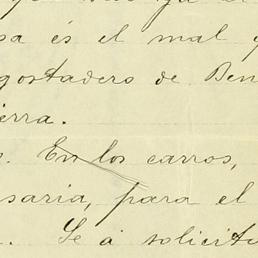 sa és el mal
gostadero de Ben
erra.
En los carros,
saria, para el
Se á solicitu